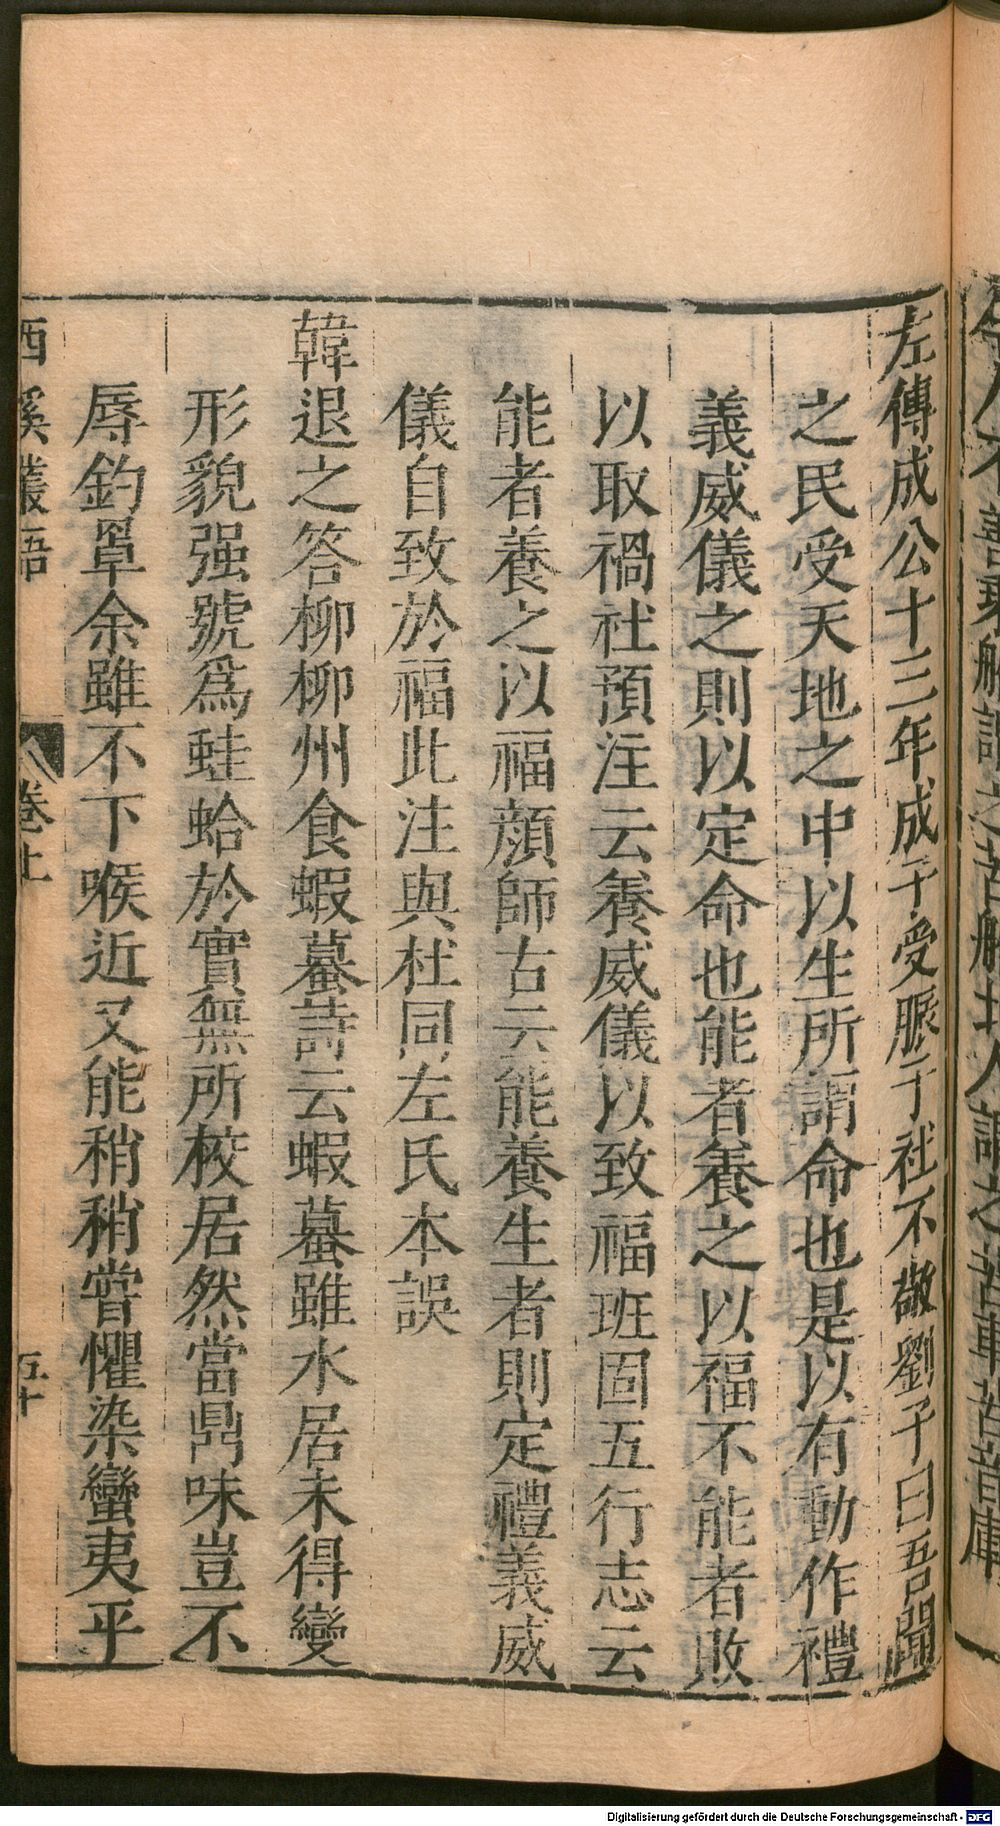 左傳成公十三年成子受脤于社不敬劉子曰吾聞
之民受天地之中以生所謂命也是以有動作禮
義威儀之則以定命也能者養之以福不能者敗
以取禍社預注云養威儀以致福班固五行志云
能者養之以福顔師古云能養生者則定禮義威
儀自致於福此注與杜同左氏本誤
韓退之答柳柳州食蝦蟇詩云蝦蟇雖水居未得變
形貌强號爲蛙蛤於實無所校居然當鼎味豈不
辱釣罩余雖不下喉近又能稍稍嘗懼染蠻夷平
西溪叢語 卷上 五十
Digitalisierung gefördert durch die Deutsche Forschungsgemeinschaft - DFG